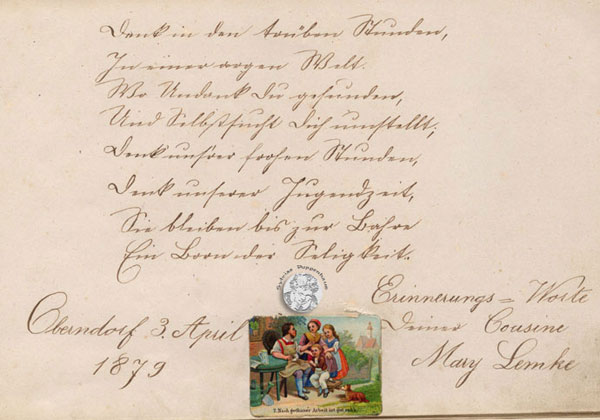 Denk in den trüben Stunden,
In einer argen Welt.
Wo Undank Du gefunden,
Und Selbstsucht Dich umstellt;
Denk unsrer frohen Stunden,
Denk unserer Jugendzeit,
Sie bleiben bis zur Bahre
Ein Born der Seligkeit.
Erinnerungs=Worte
Deiner Cousine
Mary Lemke
Oberndorf 3. April
1879
Nach gethaner Arbeit ist gut ruhn.